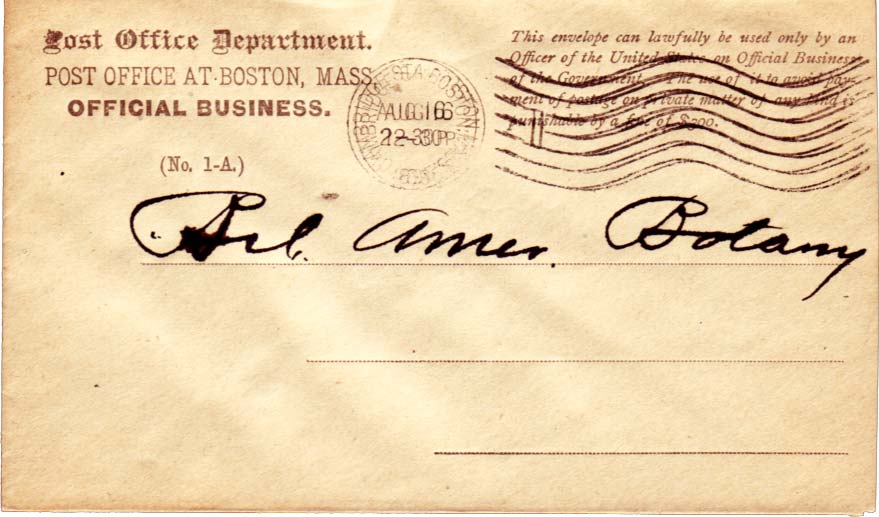 Post Office Department.
POST OFFICE AT BOSTON, MASS.
OFFICIAL BUSINESS.
(No. 1-A.)
This envelope can lawfully be used only by an
Officer of the United States on Official Business
of the Government. The use of it to avoid pay-
ment of postage on private matter of any kind is
punishable by a fine of $300.
BOSTON
Amer. Botany